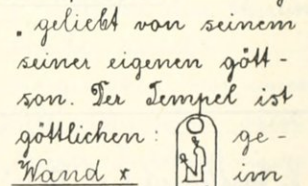 . geliebt von seinem
seiner eigenen gött-
son. Der Tempel ist
göttlichen: ge-
Wand x im